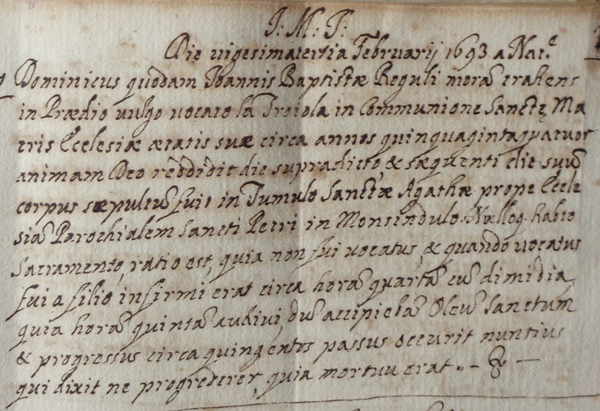 J: M: J:
Die vigesimatertia Februarij 1693 a Nat.e
Dominicus quodam Joannis Baptistæ Reguli moră trahens
in Prædio vulgo vocato la Troiola in Communione Sanctę Ma
tris Ecclesiæ ætatis suæ circa annos quinquagintaquatuor
animam Deo reddidit die supradicto, & sæquenti die suŭ
corpus sæpultŭ fuit in Tumulo Sanctæ Agathæ prope Eccle
siă Parochialem Sancti Petri in Monsindulo. Nullog. habto
Sacramento, ratio est, quia non fui vocatus, & quando vocatus
fui a filio infirmi erat circa horă quartă cŭ dimidia,
quia horă quintă audivi, dŭ accipiebă Oleŭ Sanctum
& progressus circa quingentos passus occurit nuntius
qui dixit ne progrederer, quia mortuŭ erat.